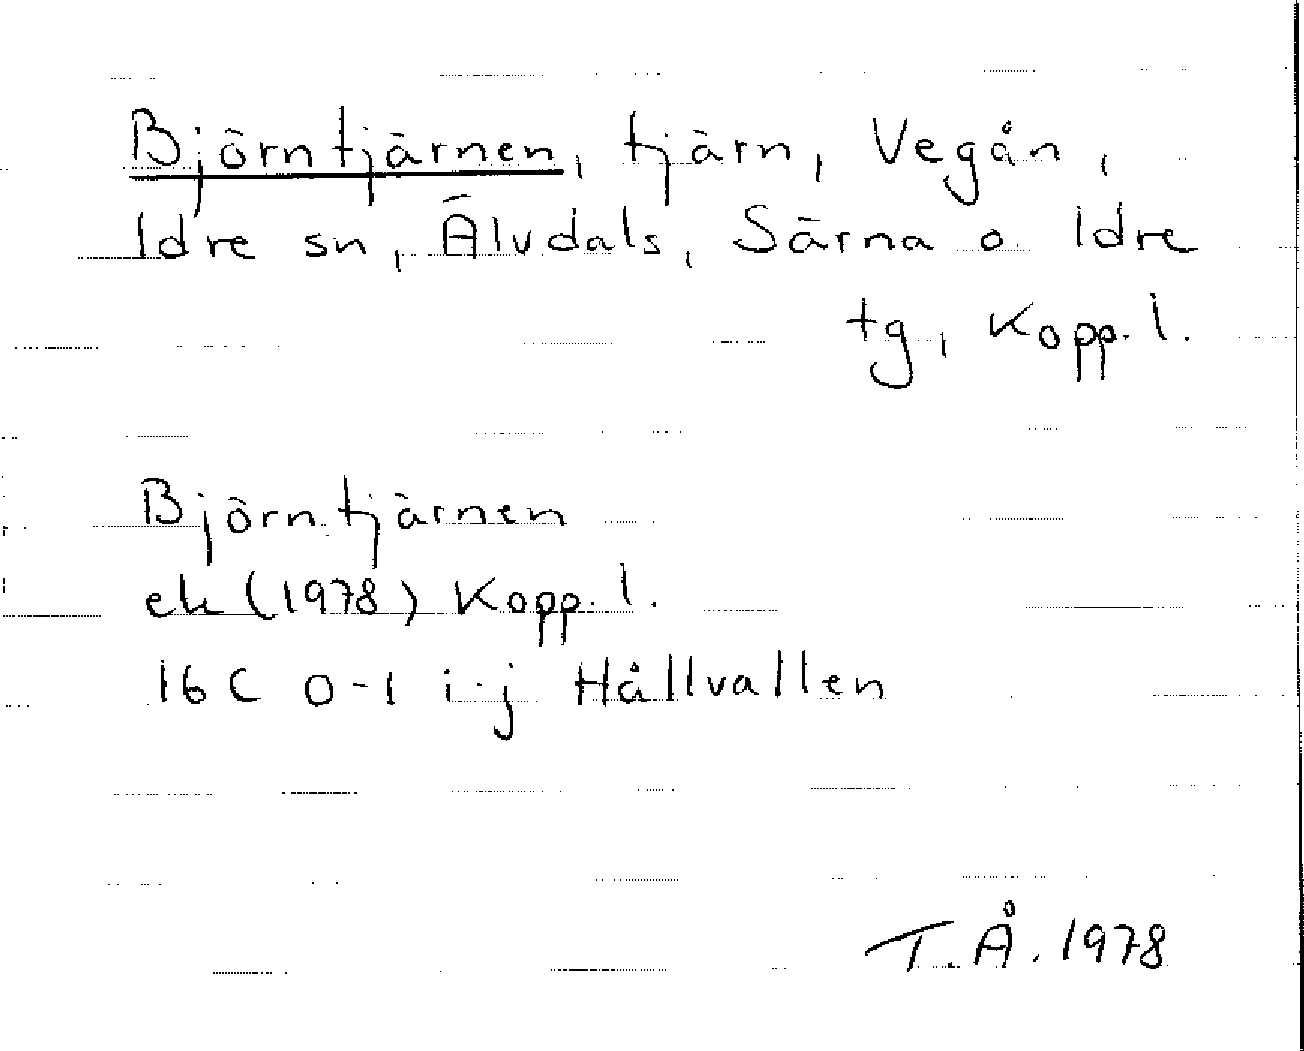 Björntjärnen, tjärn, Vegån,
Idre sn, Älvdals, Särna o Idre
tg, Kopp. l.
Björntjärnen
ek (1978) Kopp. l.
16 C 0-1 i-j Hållvallen
T. Å. 1978